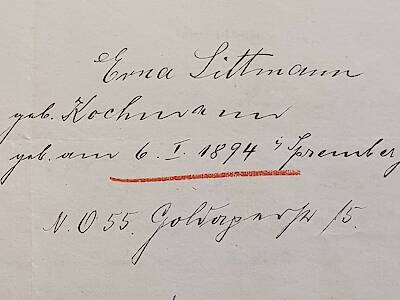 Erna Littmann
geb. Kochmann
geb. am 6. I. 1894 i/ Spremberg
N.O 55. Goldaperstr 15.